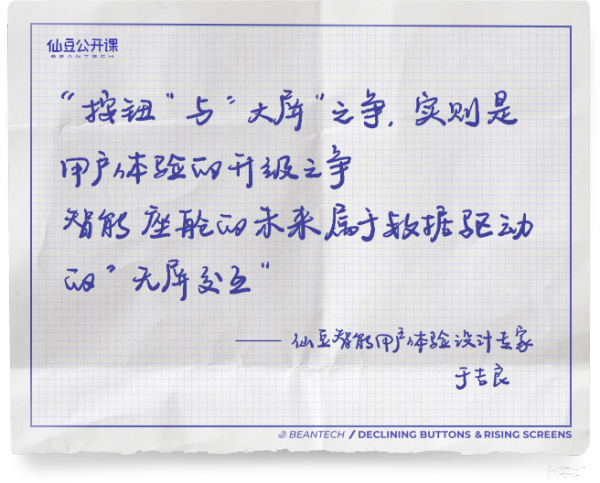 仙豆公开课
BEANTECH
“按钮”与“大屏”之争，实则是
用户体验的升级之争
智能座舱的未来属于数据驱动
的“无屏交互”
——仙豆智能用户体验设计专家
于吉良
BEANTECH / DECLINING BUTTONS & RISING SCREENS